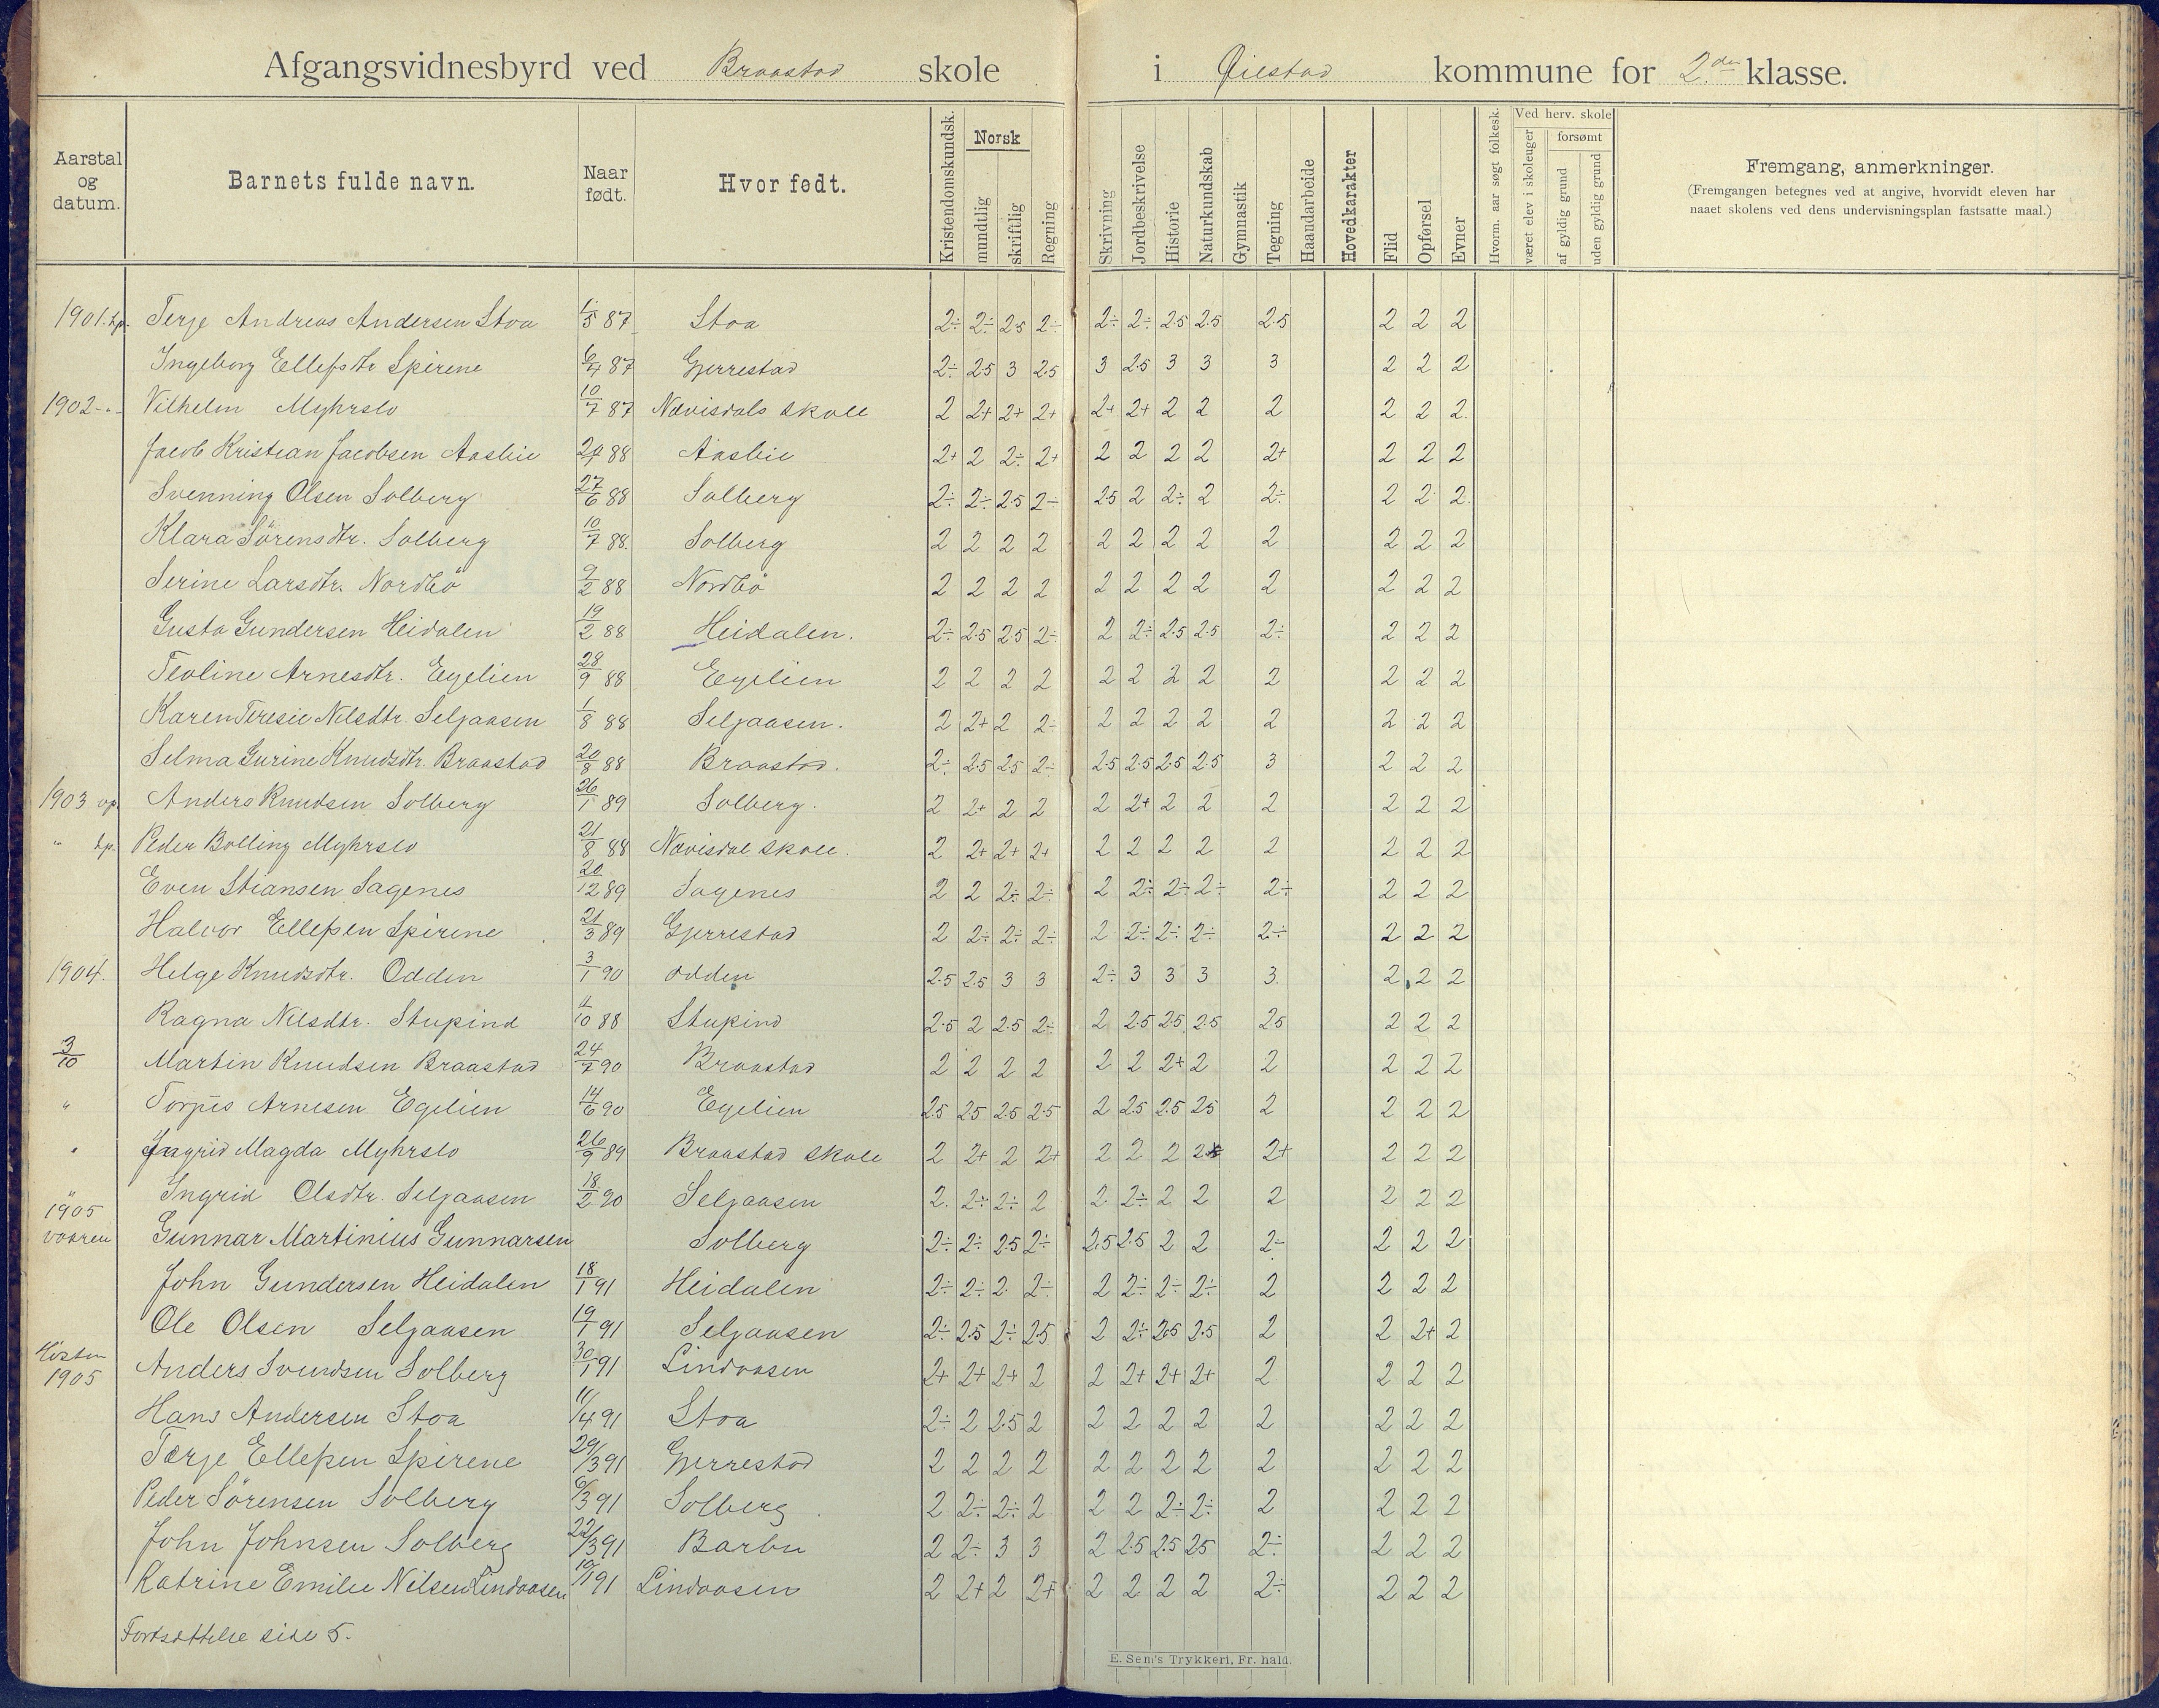 Afgangsvidnesbyrd ved Braastad skole i Øiestad kommune for 2.den klasse.
Aarstal og datum. Barnets fulde navn. Naar født. Hvor født. Kristendomskundsk. Norsk mundtlig skriftlig Regning Skrivning Jordbeskrivelse Historie Naturkundskab Gymnastik Tegning Haandarbeide Hovedkarakter Flid Opførsel Evner Hvorm. aar søgt folkesk. Ved herv. skole været elev i skoleuger forsømt af gyldig grund uden gyldig grund Fremgang, anmerkninger.
(Fremgangen betegnes ved at angive, hvorvidt eleven har
naaet skolens ved dens undervisningsplan fastsatte maal.)
1901 hp. Terje Andreas Andersen Stoa 1/5 87 Stoa 2÷ 2÷ 2.5 2÷ 2÷ 2÷ 2.5 2.5 2.5 2 2 2
Ingeborg Ellefsdtr Spirene 6/4 87 Gjerrestad 2÷ 2.5 3 2.5 3 2.5 3 3 3 2 2 2
1902 -"- Vilhelm Myhrslo 10/7 87 Nævisdals skole 2 2+ 2+ 2+ 2+ 2+ 2 2 2 2 2 2
Jacob Kristian Jacobsen Aaslie 88 Aaslie 2+ 2 2÷ 2+ 2 2 2 2 2+ 2 2 2
Svenning Olsen Solberg 27/6 88 Solberg 2÷ 2÷ 2.5 2÷ 2.5 2 2÷ 2 2÷ 2 2 2
Klara Sörensdtr. Solberg 10/7 88. Solberg 2 2 2 2 2 2 2 2 2 2 2 2
Serine Larsdtr. Nordbö 9/2 88 Nordbö 2 2 2 2 2 2 2 2 2 2 2 2
Gusta Gundersen Heidalen 19/2 88 Heidalen. 2÷ 2.5 2.5 2÷ 2 2÷ 2.5 2.5 2÷ 2 2 2
Teoline Arnesdtr. Egelien 28/9 88 Egelien 2 2 2 2 2 2 2 2 2 2 2 2
Karen Teresie Nilsdtr. Seljaasen 1/8 88 Seljaasen. 2 2+ 2 2÷ 2 2 2 2 2 2 2 2
Selma Gurine Knudsdtr. Braastad 20/8 88 Braastad. 2÷ 2.5 2.5 2÷ 2.5 2.5 2.5 2.5 3 2 2 2
1903 vp. Anders Knudsen Solberg 26/1 89 Solberg. 2 2+ 2 2 2 2+ 2 2 2 2 2 2
" hp. Peder Bolling Myhrslo 21/8 88 Nævisdal skole. 2 2+ 2+ 2+ 2 2 2 2 2 2 2 2
Even Stiansen Sagenes 20/12 89 Sagenes 2 2 2÷ 2÷ 2 2÷ 2÷ 2÷ 2÷ 2 2 2
Halvor Ellefsen Spirene 21/3 89 Gjerrestad 2 2÷ 2÷ 2÷ 2 2÷ 2÷ 2÷ 2÷ 2 2 2
1904. Helge Knudsdtr. Odden 3/1 90 Odden 2.5 2.5 3 3 2÷ 3 3 3 3. 2 2 2
Ragna Nilsdtr. Stupind 88 Stupind 2.5 2 2.5 2÷ 2 2.5 2.5 2.5 2.5 2 2 2
3/10 Martin Knudsen Braastad 24/7 90 Braastad 2 2 2 2 2 2 2+ 2 2 2 2 2
" Torjus Arnesen Egelien 14/6 90 Egelien 2.5 2.5 2.5 2.5 2 2.5 2.5 2.5 2 2 2 2
" Ingrid Magda Myhrslo 26/9 89 Braastad skole 2 2+ 2 2+ 2 2 2 2 2+ 2 2 2
" Ingrid Olsdtr. Seljaasen 18/2 90 Seljaasen 2. 2÷ 2÷ 2 2 2÷ 2 2 2 2 2 2
1905
vaaren Gunnar Martinius Gunnarsen Solberg 2÷ 2÷ 2.5 2÷ 2.5 2.5 2 2 2÷ 2 2 2
John Gundersen Heidalen 18/1 91 Heidalen 2÷ 2÷ 2. 2÷ 2 2÷ 2÷ 2÷ 2 2 2 2
Ole Olsen Seljaasen 19/1 91 Seljaasen 2÷ 2.5 2÷ 2.5 2 2÷ 2.5 2.5 2 2 2+ 2
Hösten
1905 Anders Svendsen Solberg 30/1 91 Lindaasen 2+ 2+ 2+ 2 2 2+ 2+ 2+ 2 2 2 2
Hans Andersen Stoa 11/4 91 Stoa 2÷ 2 2.5 2 2 2 2 2 2 2 2 2
Terje Ellefsen Spirene 29/3 91 Gjerrestad 2 2 2 2 2 2 2 2 2 2 2 2
Peder Sörensen Solberg 6/3 91 Solberg 2 2÷ 2÷ 2 2 2 2÷ 2÷ 2 2 2 2
John Johnsen Solberg 22/3 91 Barbu 2 2÷ 3 3 2 2.5 2.5 2.5 2÷ 2 2 2
Katrine Emilie Nilsen Lindaasen 91 Lindaasen 2 2+ 2 2+ 2 2 2 2 2÷ 2 2 2
Fortsættelse side 5.
E. Sem's Trykkeri, Fr. hald.